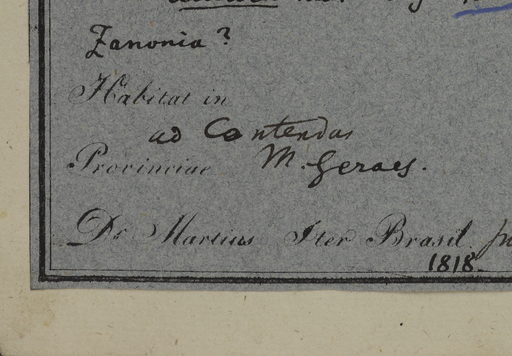 Zanonia?
Habitat in
ad Contendas
Provinciae M. Geraes.
Dr. Martius Iter Brasil.
1818.